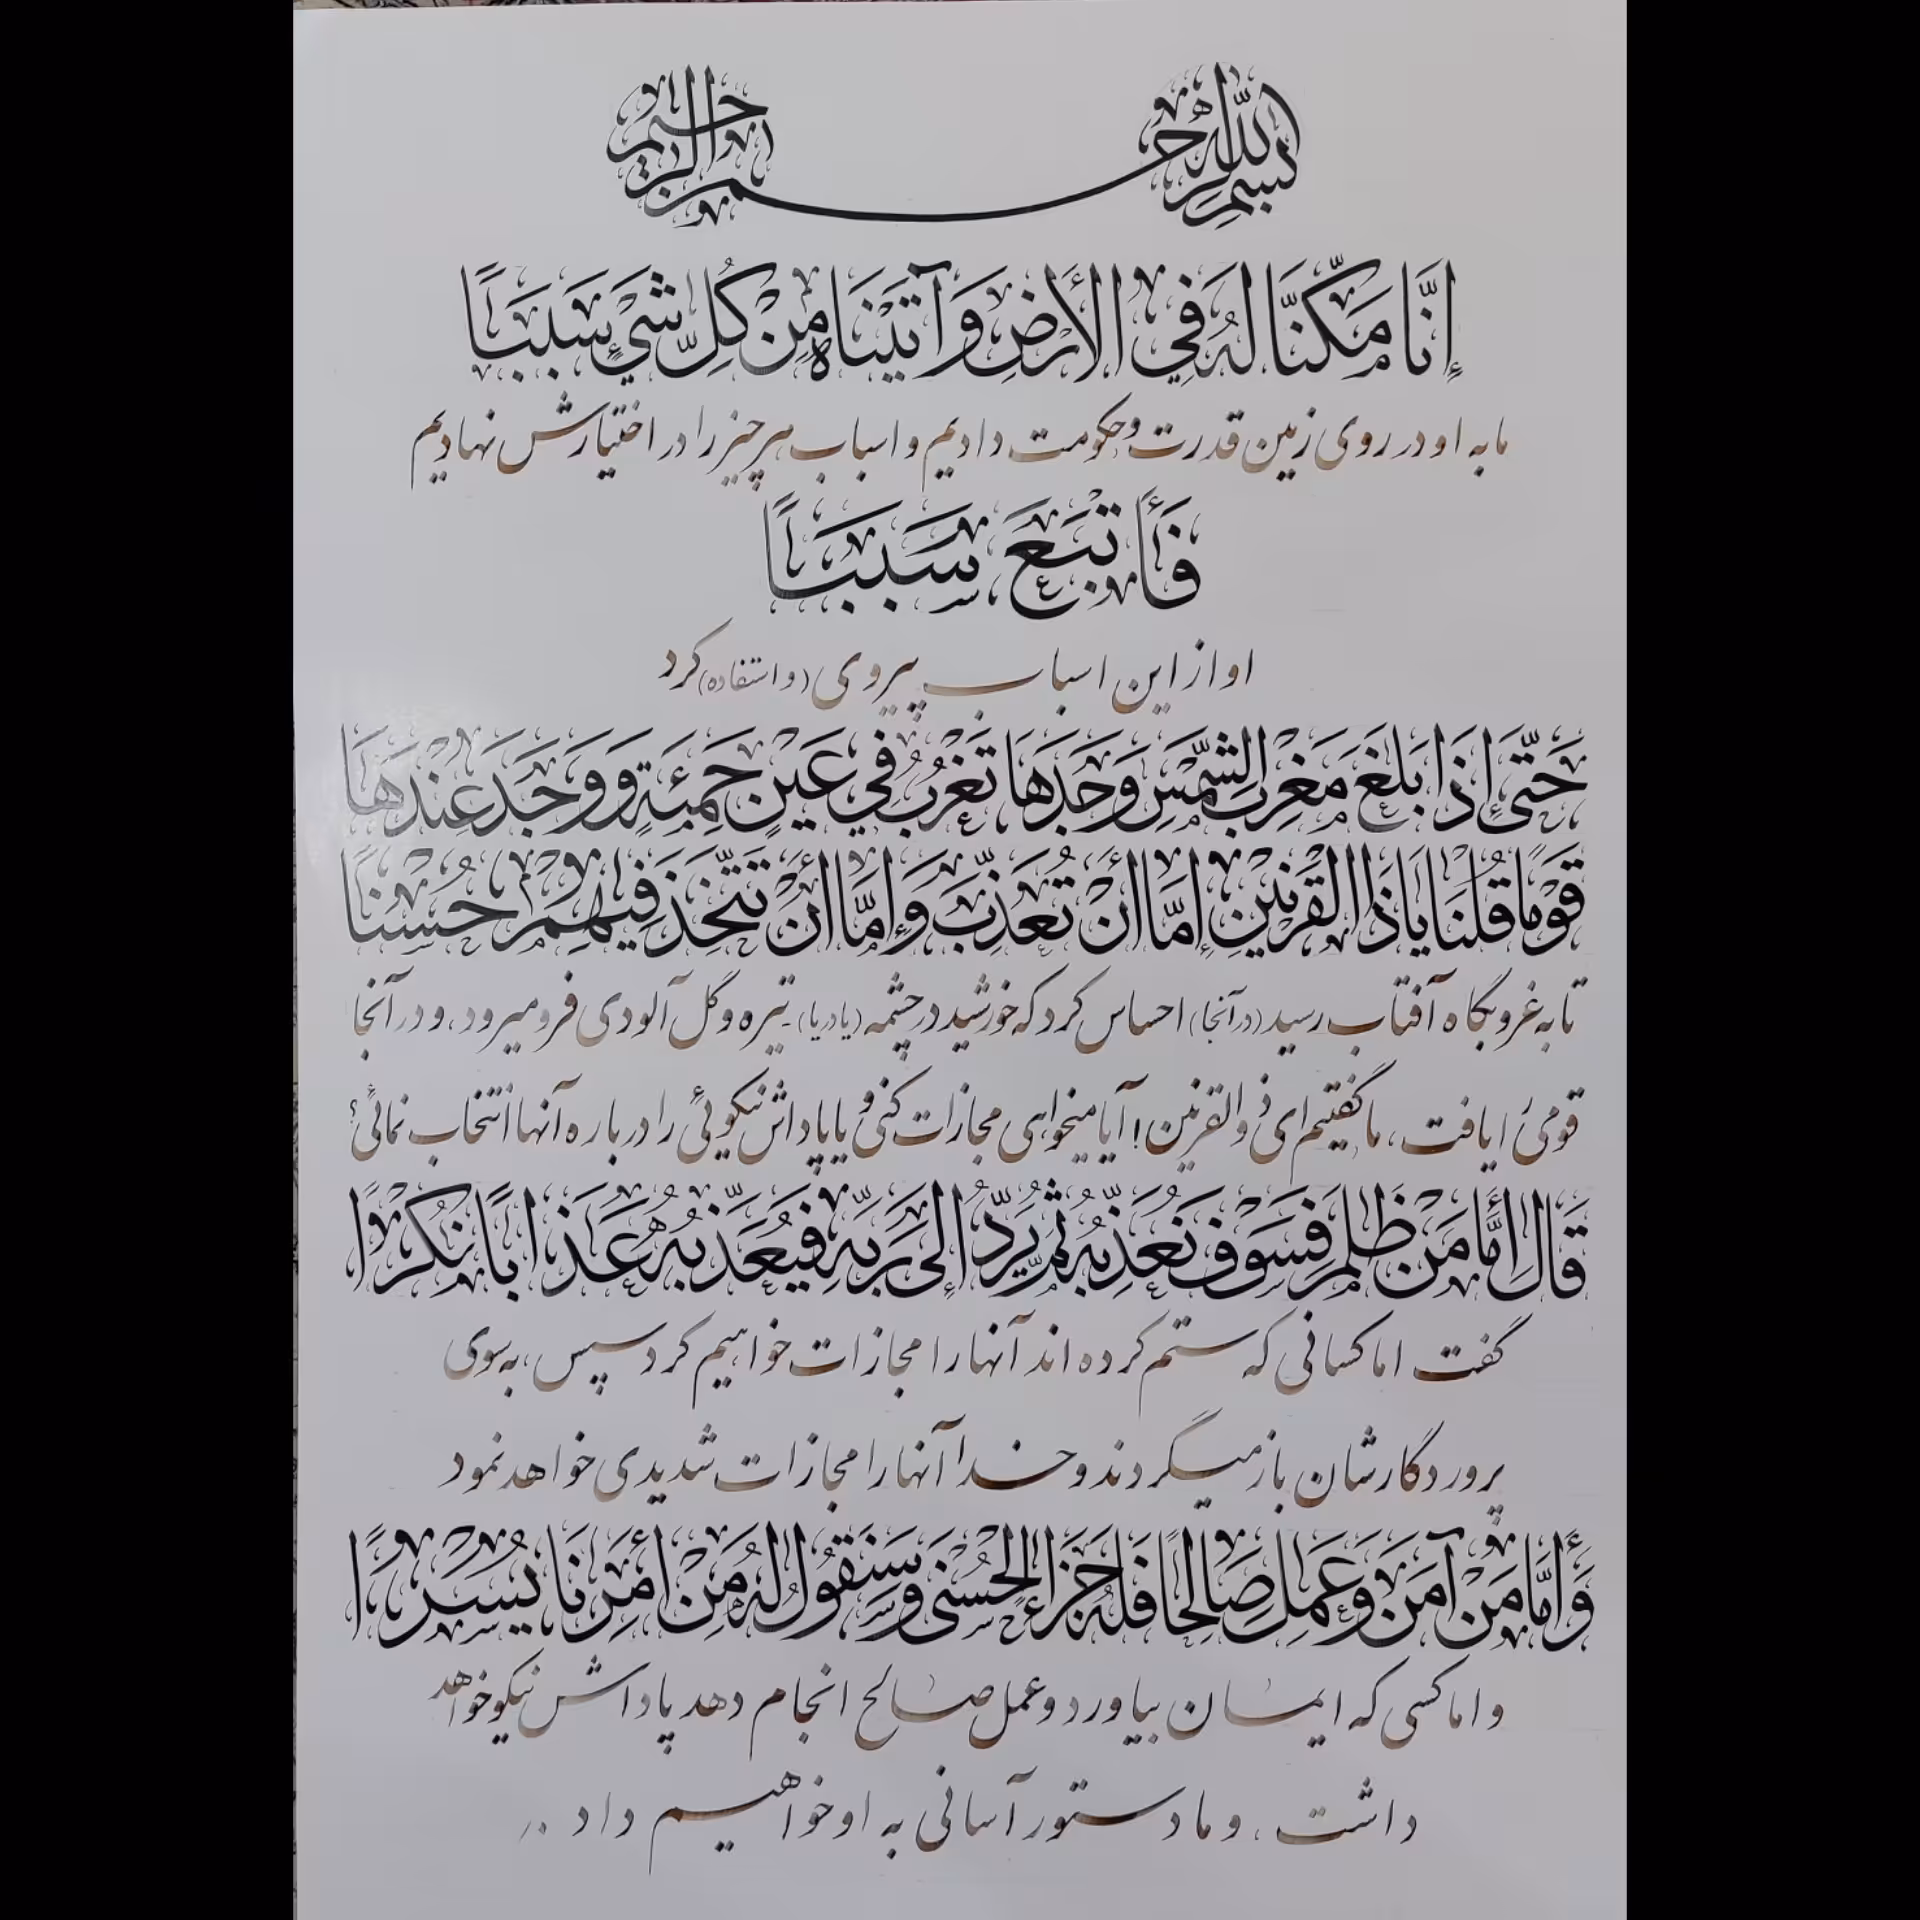 بسم الله الرحمن الرحیم
إِنَّا مَكَّنَّا لَهُ فِي الأَرْضِ وَآتَيْنَاهُ مِنْ كُلِّ شَيْءٍ سَبَبًا
ما به او در روی زمین قدرت و حکومت دادیم و اسباب هر چیز را در اختیارش نهادیم
فَأَتْبَعَ سَبَبًا
او از این اسباب پیروی (و استفاده) کرد
حَتَّى إِذَا بَلَغَ مَغْرِبَ الشَّمْسِ وَجَدَهَا تَغْرُبُ فِي عَيْنٍ حَمِئَةٍ وَوَجَدَ عِنْدَهَا
قَوْمًا قُلْنَا يَا ذَا الْقَرْنَيْنِ إِمَّا أَنْ تُعَذِّبَ وَإِمَّا أَنْ تَتَّخِذَ فِيهِمْ حُسْنًا
تا به غروبگاه آفتاب رسید (در آنجا) احساس کرد که خورشید در چشمه (یا دریا)ـ تیره و گل آلودی فرو میرود، و در آنجا
قومی را یافت، ما گفتیم ای ذوالقرنین! آیا میخواهی مجازات کنی و یا پاداش نیکوئی را درباره آنها انتخاب نمائی؟
قَالَ أَمَّا مَنْ ظَلَمَ فَسَوْفَ نُعَذِّبُهُ ثُمَّ يُرَدُّ إِلَى رَبِّهِ فَيُعَذِّبُهُ عَذَابًا نُكْرًا
گفت اما کسانی که ستم کرده اند آنها را مجازات خواهیم کرد سپس، به سوی
پروردگارشان باز میگردند و خدا آنها را مجازات شدیدی خواهد نمود
وَأَمَّا مَنْ آمَنَ وَعَمِلَ صَالِحًا فَلَهُ جَزَاءً الْحُسْنَى وَسَنَقُولُ لَهُ مِنْ أَمْرِنَا يُسْرًا
و اما کسی که ایمان بیاورد و عمل صالح انجام دهد پاداش نیکو خواهد
داشت، و ما دستور آسانی به او خواهیم داد..